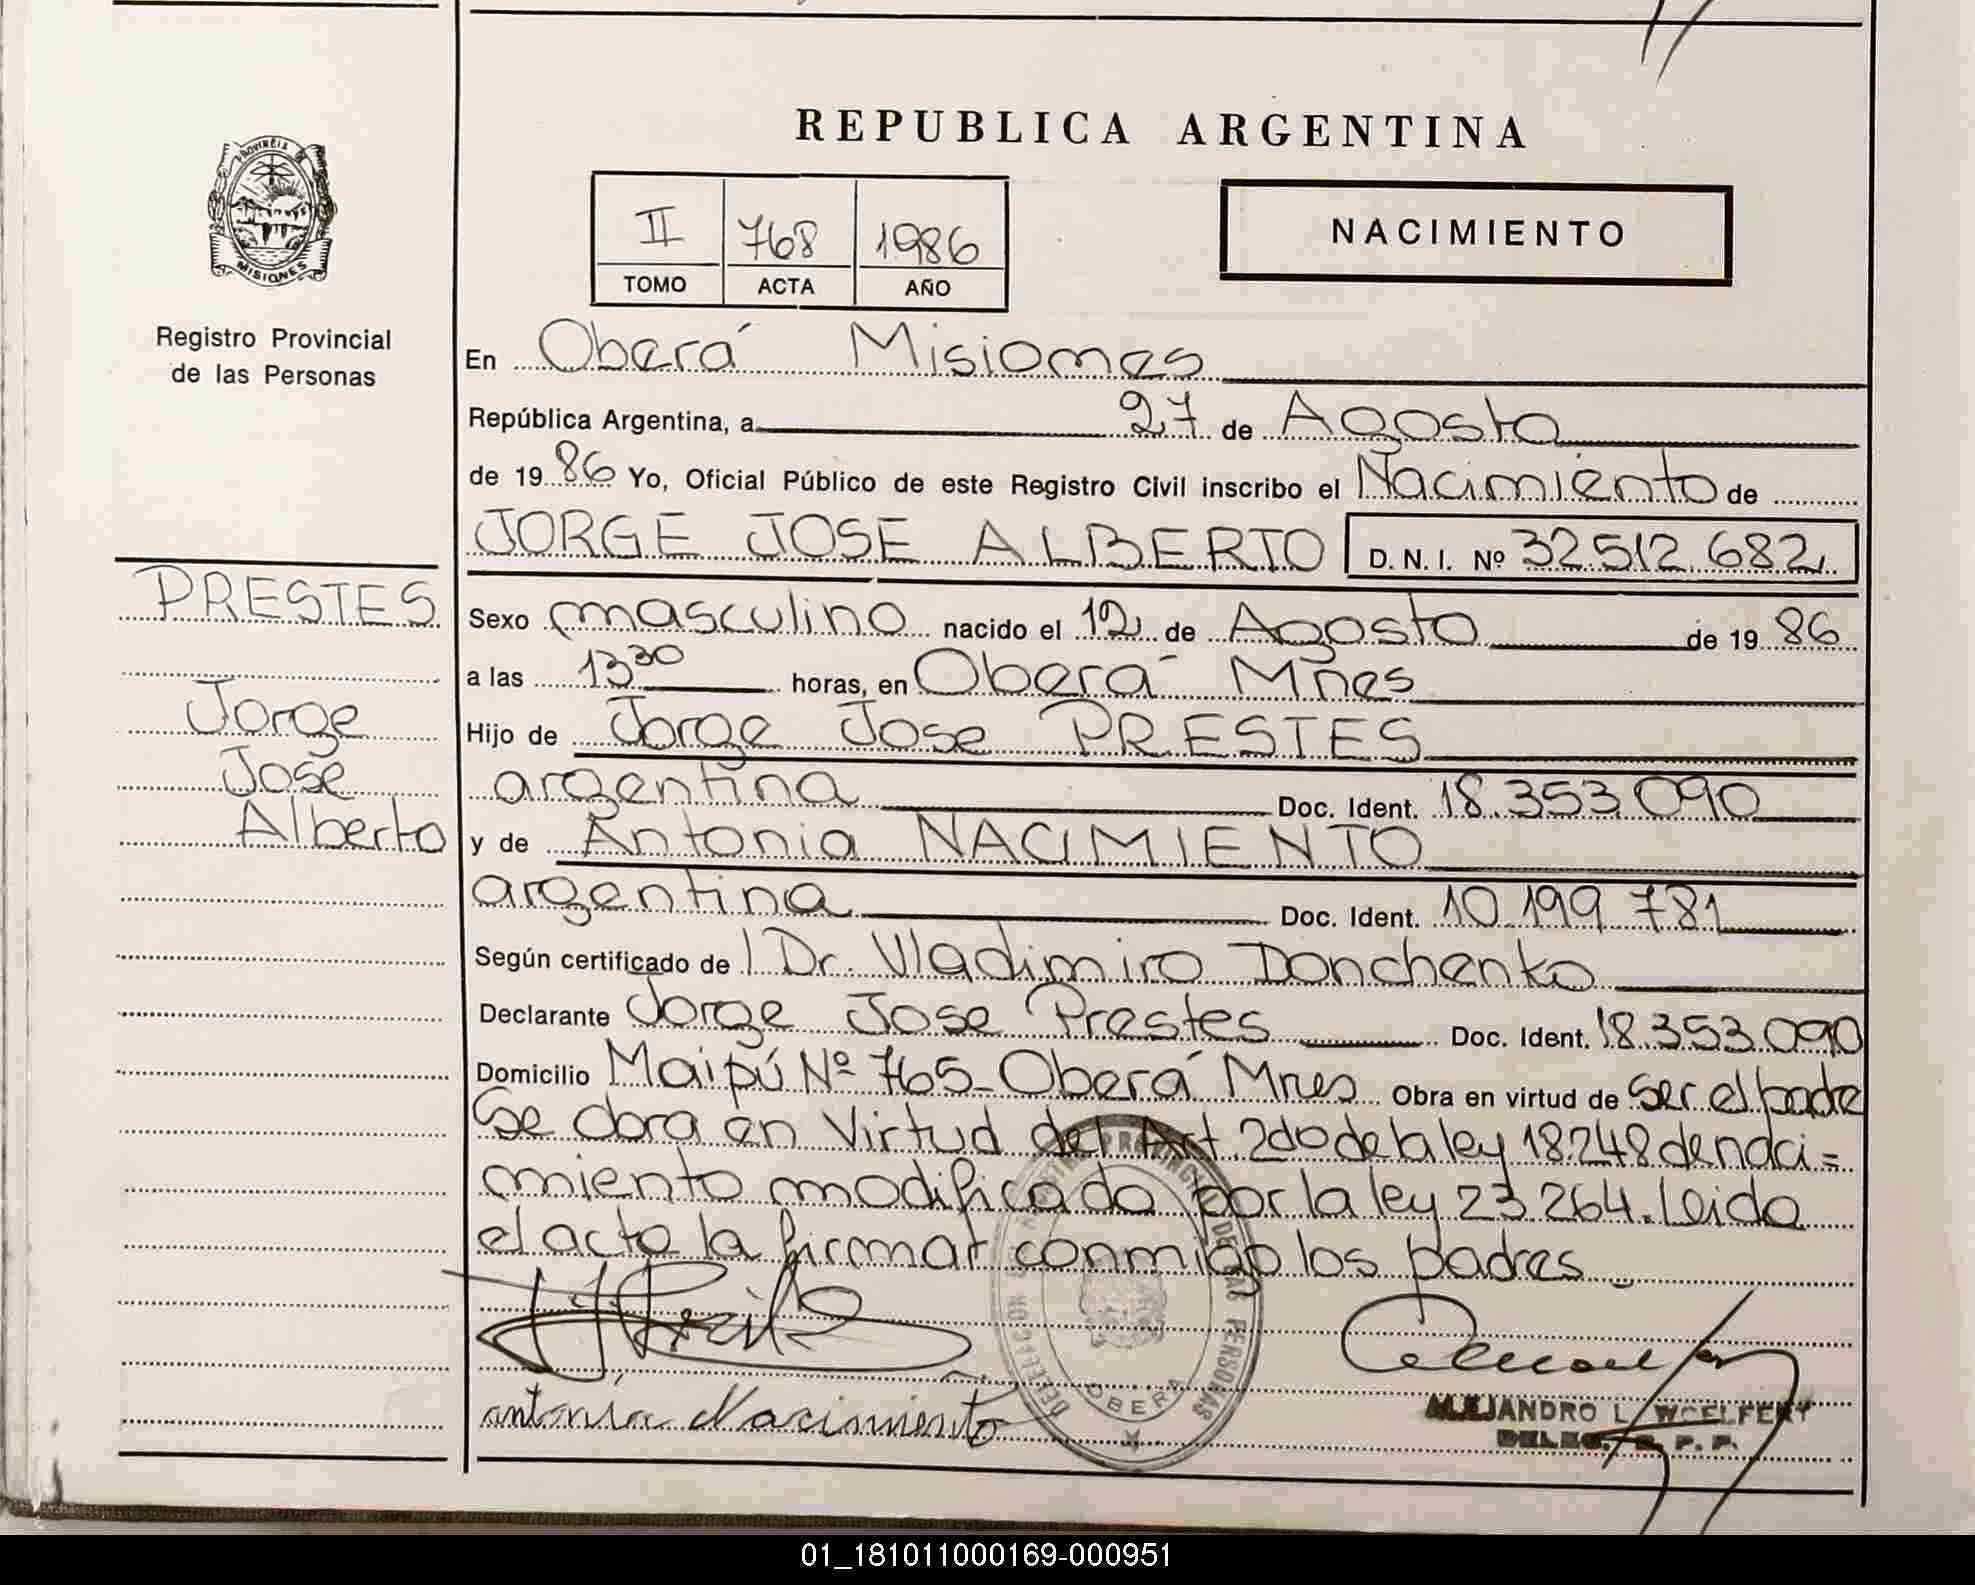 REPUBLICA ARGENTINA
PROVINCIA DE
MISIONES
Registro Provincial
de las Personas
II 768 1986
TOMO ACTA AÑO
NACIMIENTO
En Oberá Misiones
República Argentina, a 27 de Agosto
de 1986 Yo, Oficial Público de este Registro Civil inscribo el Nacimiento de
JORGE JOSE ALBERTO D. N. I. Nº 32.512.682
PRESTES
Jorge
Jose
Alberto
Sexo masculino nacido el 12 de Agosto de 1986
a las 13 30 horas, en Oberá Mñes
Hijo de Jorge Jose PRESTES
argentina Doc. Ident. 18.353.090
y de Antonia NACIMIENTO
argentina Doc. Ident. 10.199.781
Según certificado de Dr. Vladimiro Donchenko
Declarante Jorge Jose Prestes Doc. Ident. 18.353.090
Domicilio Maipú Nº 765 - Oberá Mnes Obra en virtud de Ser el padre
Se obra en Virtud del Art. 2do de la ley 18.248 de naci=
miento modificado por la ley 23.264. Leida
el acto la firman conmigo los padres
antonia Nacimiento
DELEGACION REGISTRO PROVINCIAL DE LAS PERSONAS
OBERA
ALEJANDRO L.
DELEG. R. P. P.
01_181011000169-000951